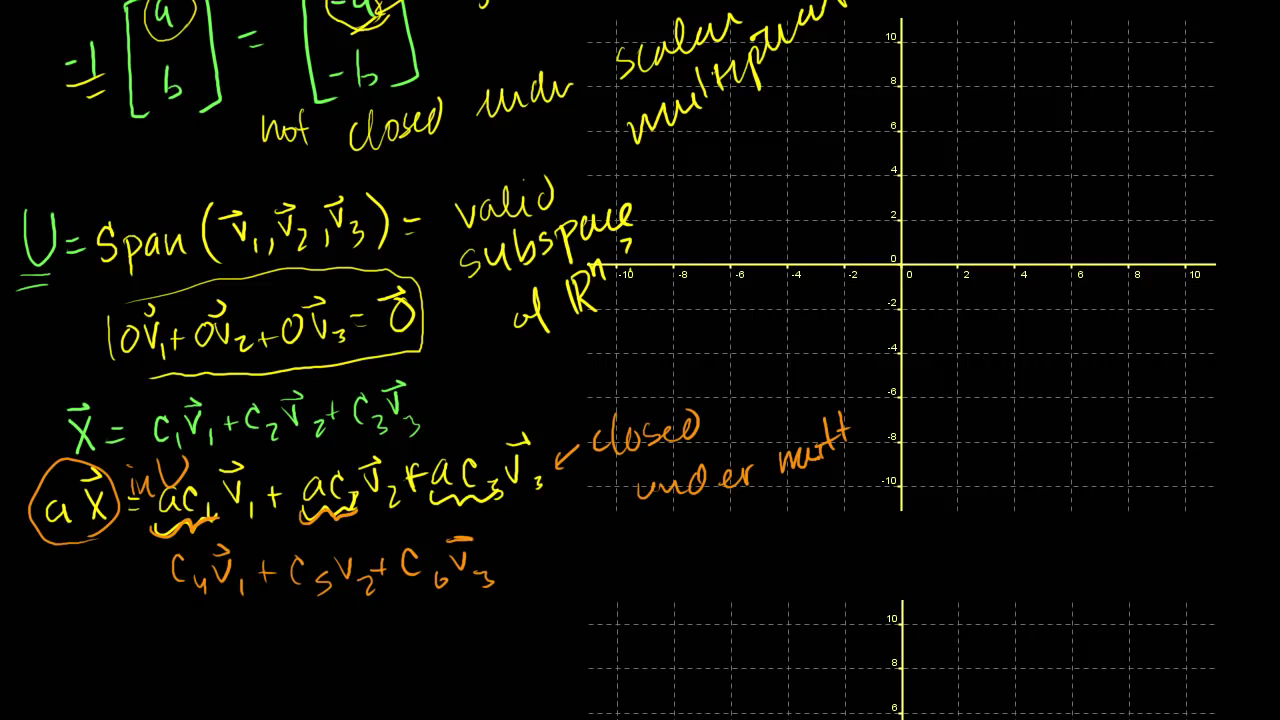 -1 [a b] = [-a -b]
not closed under scalar multiplication
U = Span (v⃗₁, v⃗₂, v⃗₃) = valid
subspace
of ℝⁿ?
0v⃗₁ + 0v⃗₂ + 0v⃗₃ = 0⃗
x⃗ = c₁v⃗₁ + c₂v⃗₂ + c₃v⃗₃
ax⃗ = ac₁v⃗₁ + ac₂v⃗₂ + ac₃v⃗₃ ← closed
in U
under mult
c₄v⃗₁ + c₅v₂ + c₆v⃗₃
10
8
6
4
2
0
-10 -8 -6 -4 -2 0 2 4 6 8 10
-2
-4
-6
-8
-10
10
8
6